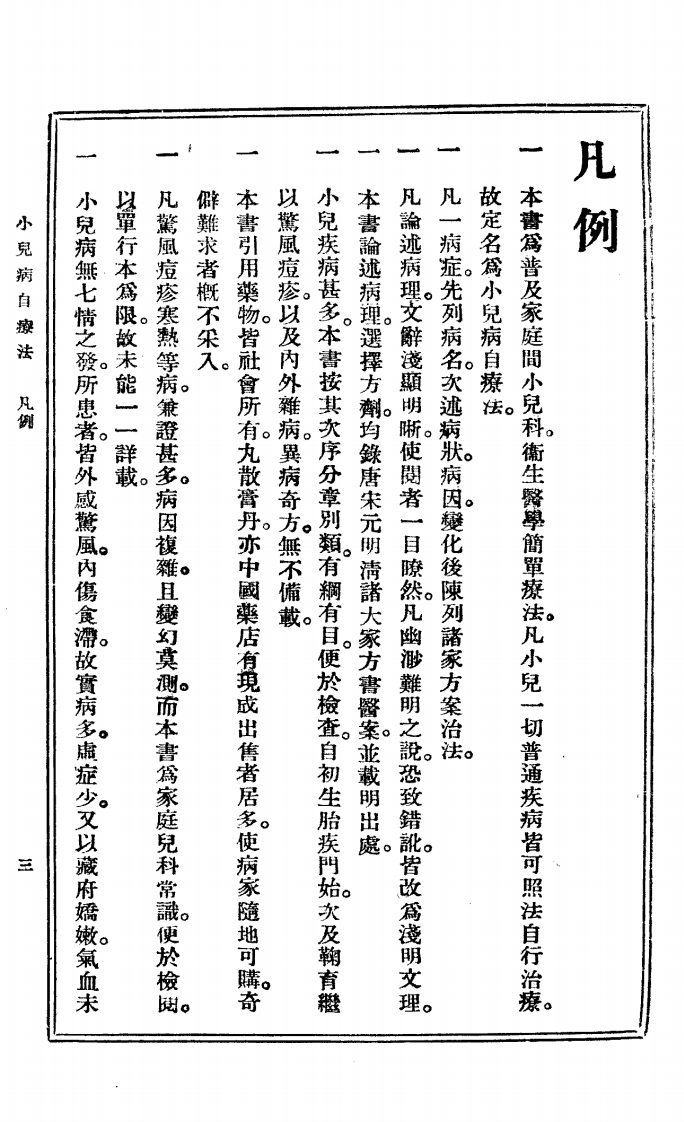 凡例
一 本書爲普及家庭間小兒科。衞生醫學簡單療法。凡小兒一切普通疾病皆可照法自行治療。
故定名爲小兒病自療法。
一 凡一病症。先列病名。次述病狀。病因。變化後陳列諸家方案治法。
一 凡論述病理。文辭淺顯明晰。使閱者一目瞭然。凡幽渺難明之說。恐致錯訛。皆改爲淺明文理。
一 本書論述病理。選擇方劑。均錄唐宋元明淸諸大家方書醫案。並載明出處。
一 小兒疾病甚多。本書按其次序分章別類。有綱有目。便於檢查。自初生胎疾門始。次及鞠育繼
以驚風痘疹。以及內外雜病。異病奇方。無不備載。
一 本書引用藥物。皆社會所有。丸散膏丹。亦中國藥店有現成出售者居多。使病家隨地可購。奇
僻難求者槪不采入。
一 凡驚風痘疹寒熱等病。兼證甚多。病因複雜。且變幻莫測。而本書爲家庭兒科常識。便於檢閱。
以單行本爲限。故未能一一詳載。
一 小兒病無七情之發。所患者。皆外感驚風。內傷食滯。故實病多。虛症少。又以藏府嬌嫩。氣血未
小兒病自療法 凡例
三